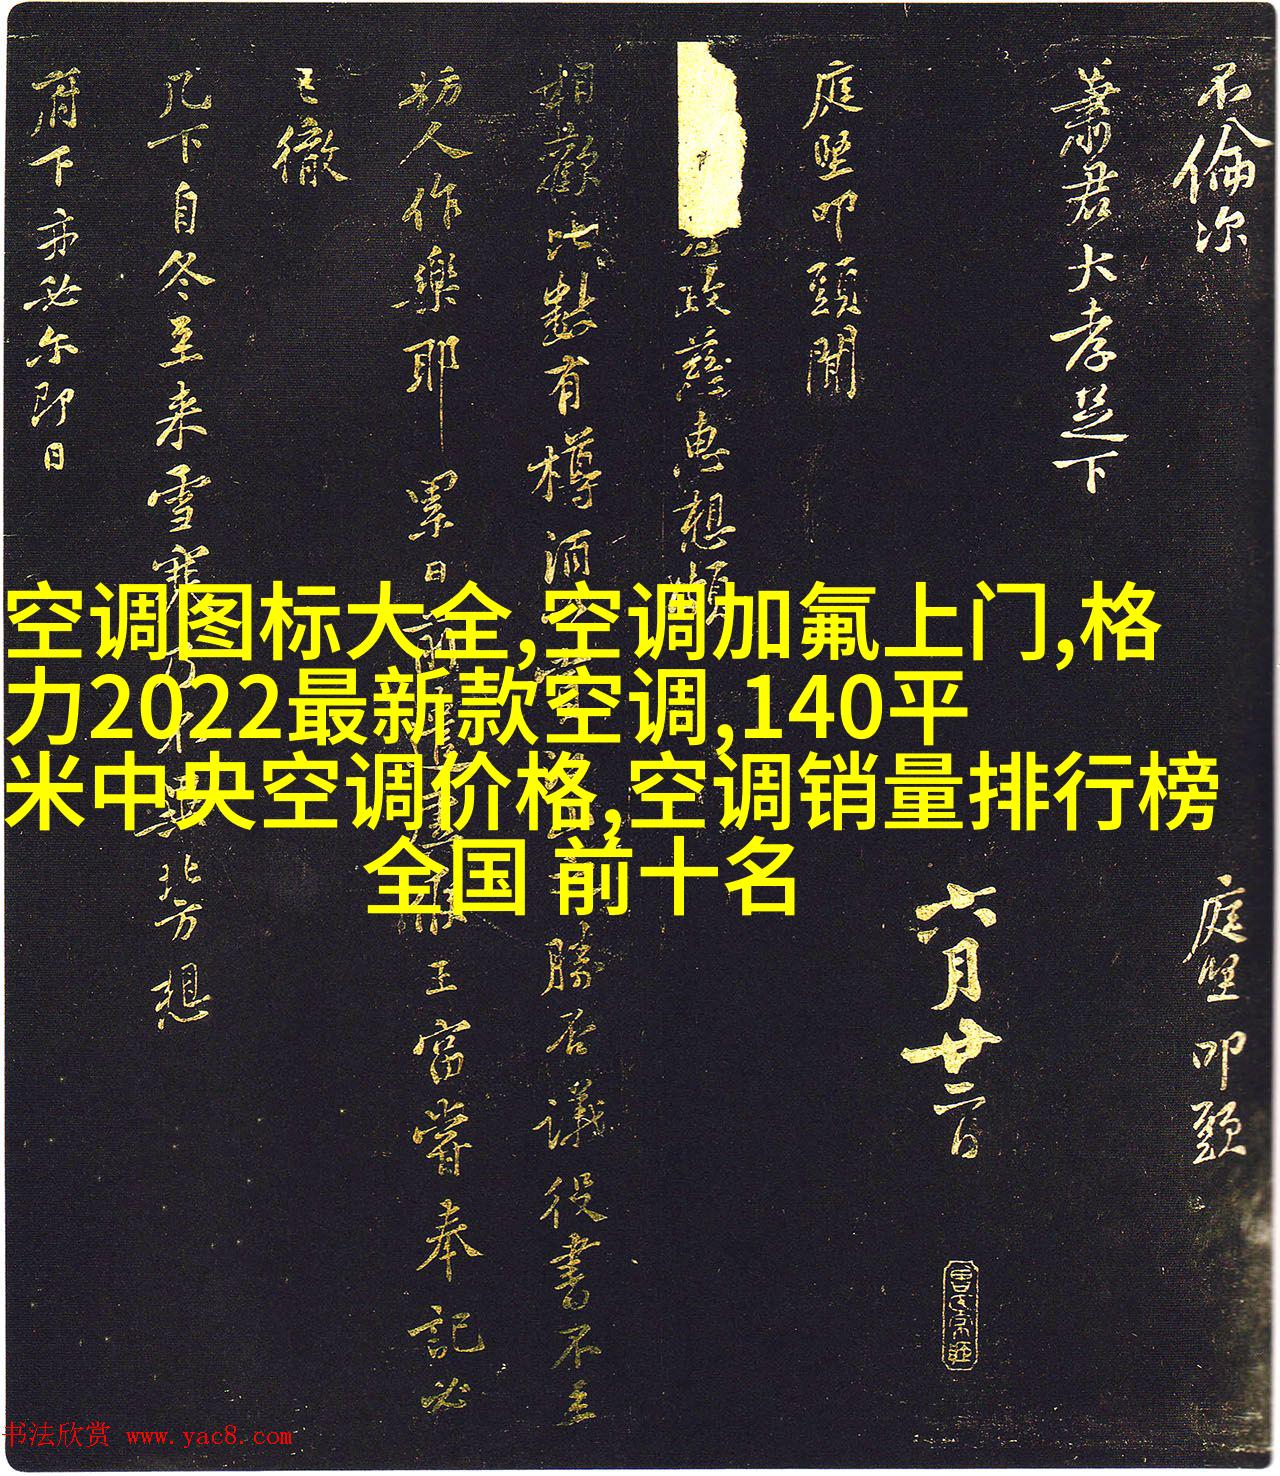 不倫次
蕭君大孝足下
庭堅叩頭
六月廿二日
庭堅叩頭聞
政慈惠想
相歡比數有樽酒
勝否議役書不主
妨人作樂耶累日
王富嘗奉記必
已徹
几下自冬至来雪寒
北方想
府下亦必尔即日
空调图标大全,空调加氟上门,格
力2022最新款空调,140平
米中央空调价格,空调销量排行榜
全国 前十名
书法欣赏 www.yac8.com